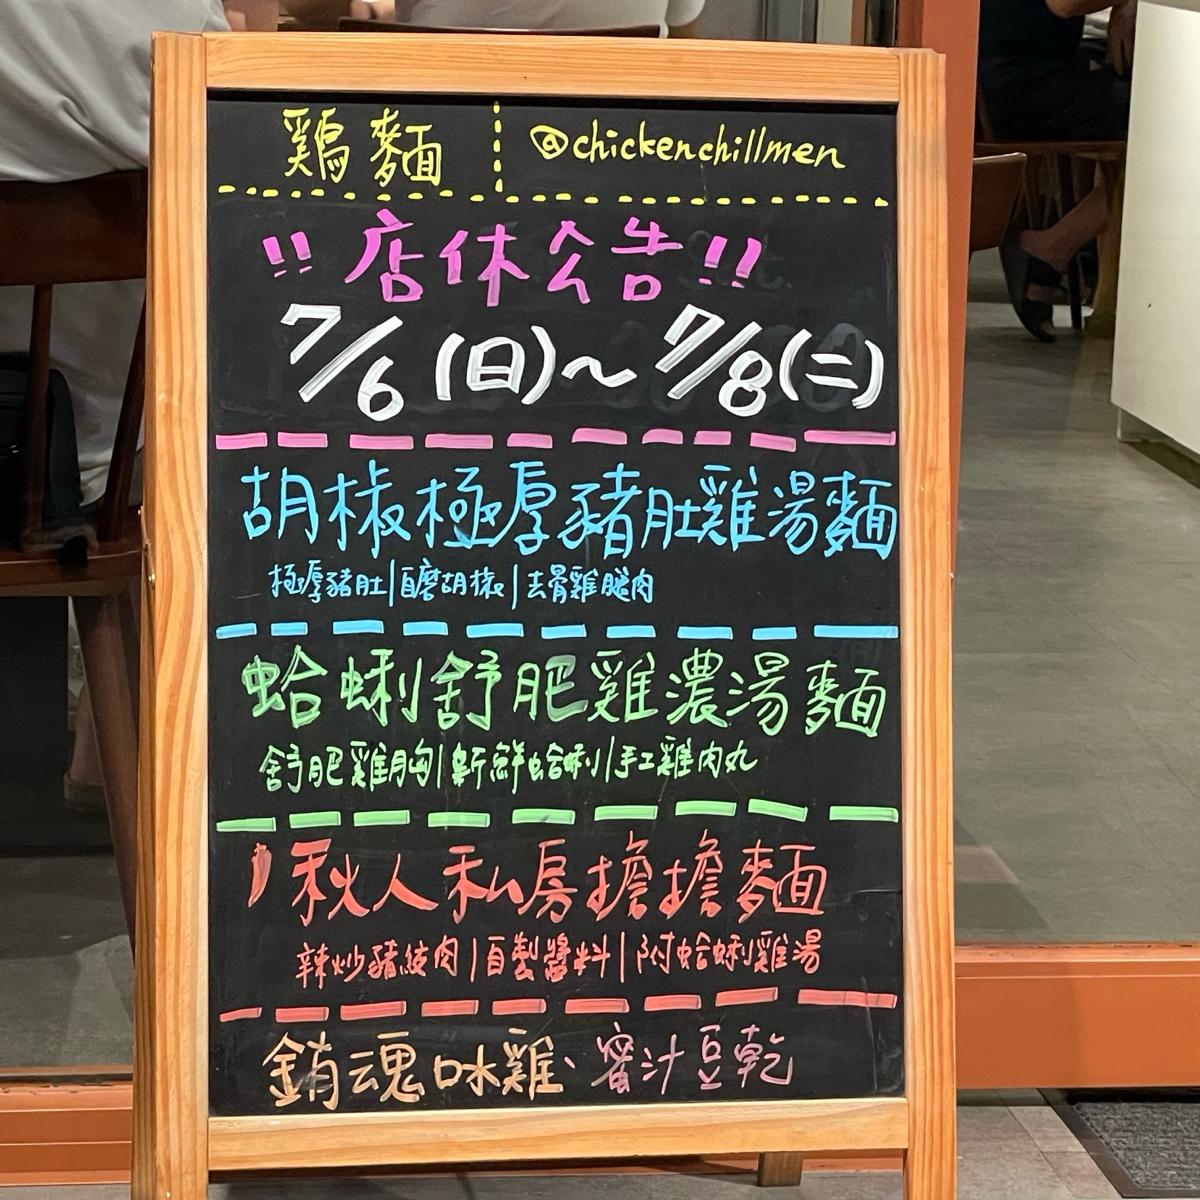 鷄麵
@chickenchillmen
!! 店休公告 !!
7/6 (日)~7/8(二)
胡椒極厚豬肚雞湯麵
極厚豬肚|自磨胡椒|去骨雞腿肉
蛤蜊舒肥雞濃湯麵
舒肥雞胸|新鮮蛤蜊|手工雞肉丸
秋人私房擔擔麵
辣炒豬絞肉|自製醬料|附蛤蜊雞湯
銷魂口水雞、蜜汁豆乾